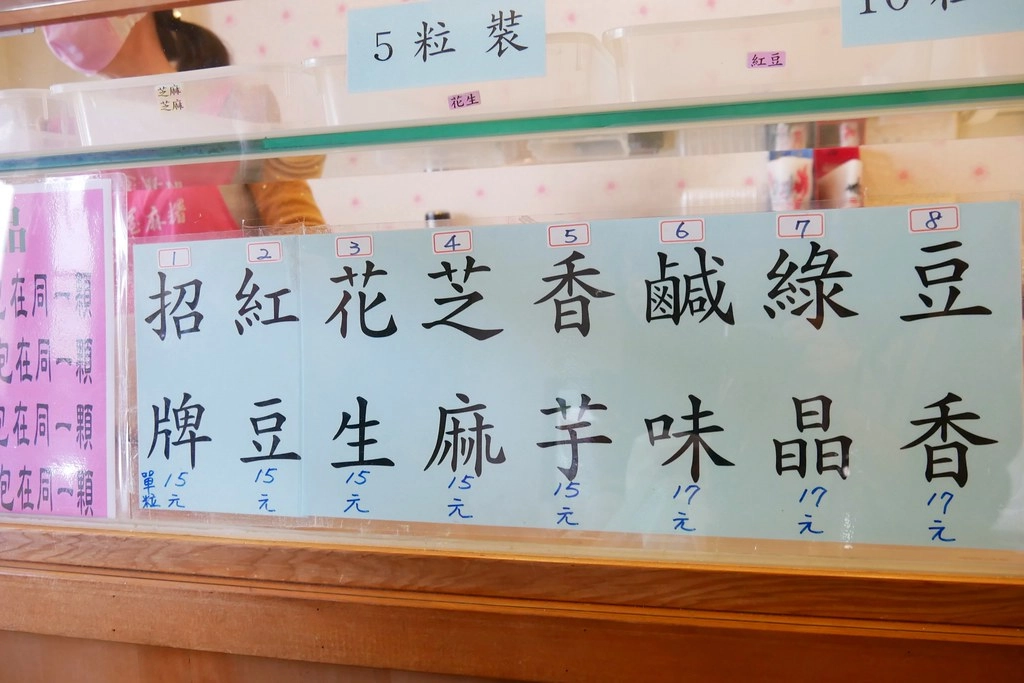 5粒裝
10
芝麻
芝麻
花生
紅豆
品
在同一顆
包在同一顆
包在同一顆
包在同一顆
1 招牌 單粒 15元
2 紅豆 15元
3 花生 15元
4 芝麻 15元
5 香芋 15元
6 鹹味 17元
7 綠晶 17元
8 豆香 17元